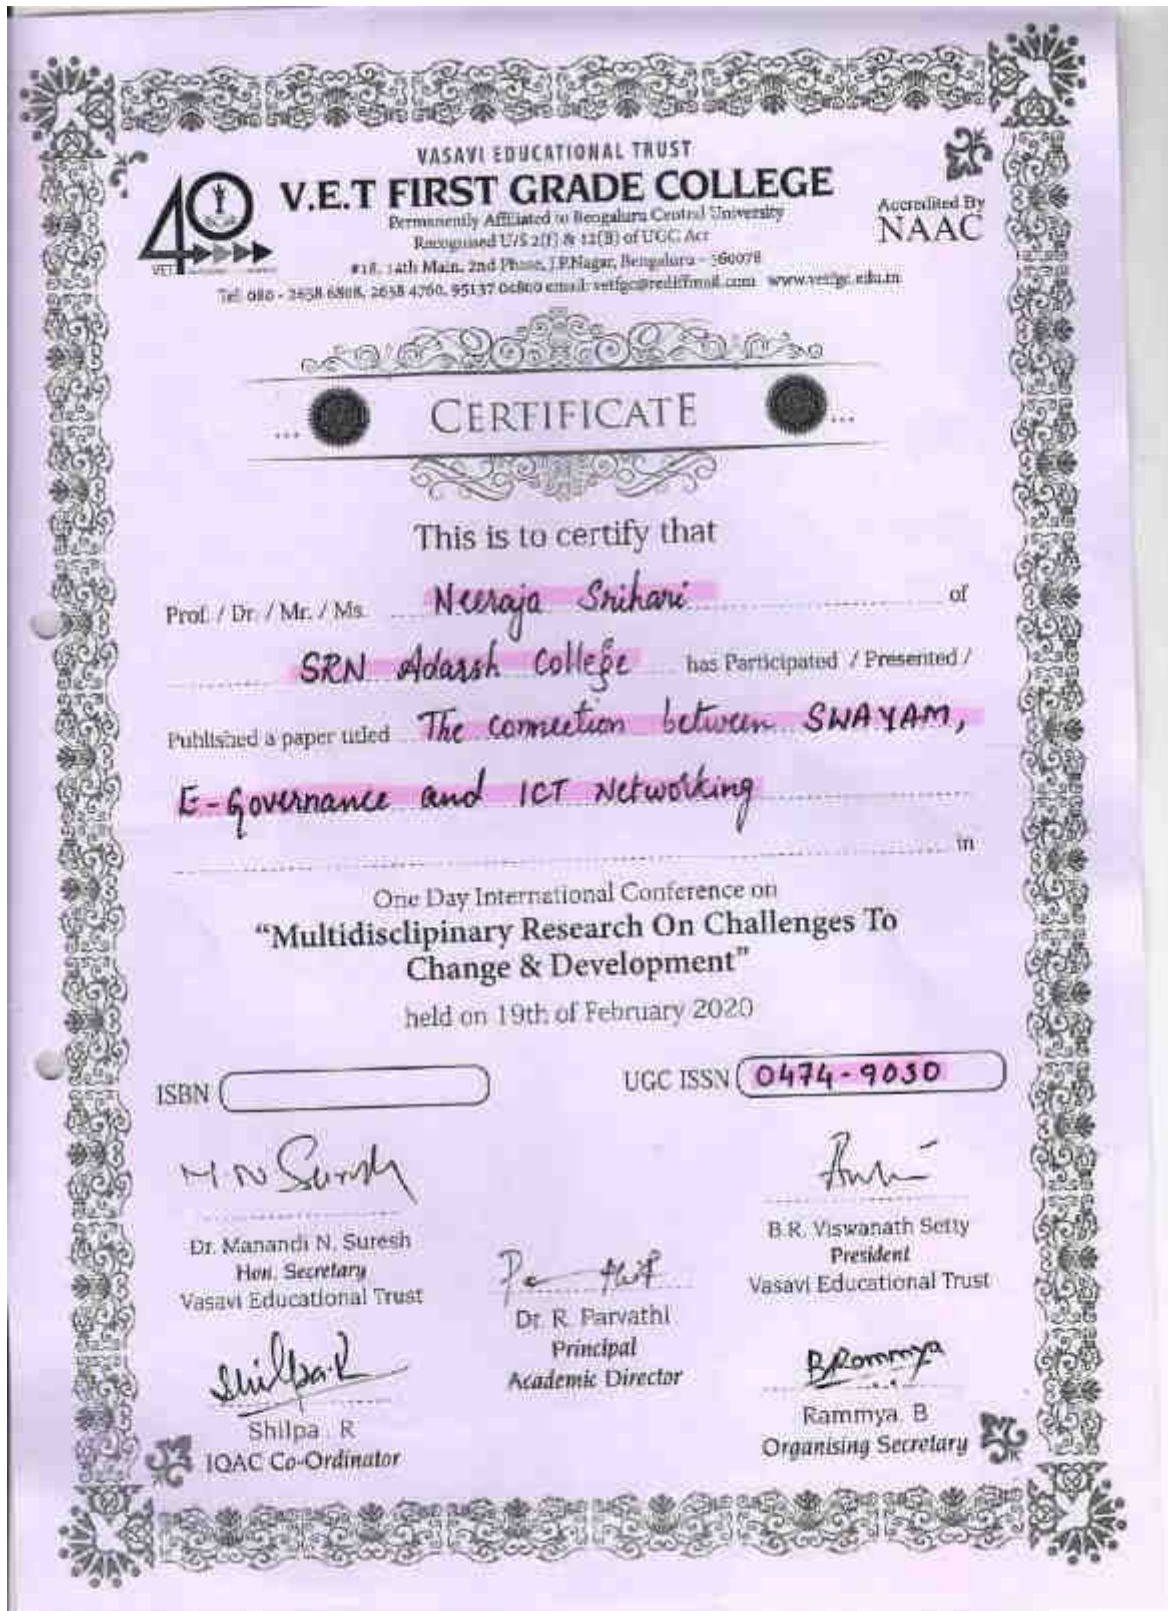 VASAVI EDUCATIONAL TRUST
V.E.T FIRST GRADE COLLEGE
Permanently Affiliated to Bengaluru Central University
Recognised U/S 2(f) & 12(B) of UGC Act
#18, 14th Main, 2nd Phase, J.P.Nagar, Bengaluru - 560078
Tel: 080 - 2658 6808, 2658 4760, 95137 email: vetfgc@rediffmail.com www.vetfgc.edu.in
Accredited By
NAAC
40
VET
CERTIFICATE
This is to certify that
Prof. / Dr. / Mr. / Ms. Neeraja Srihari of
SRN Adarsh College has Participated / Presented /
Published a paper titled The connection between SWAYAM,
E-Governance and ICT Networking
in
One Day International Conference on
“Multidisclipinary Research On Challenges To
Change & Development”
held on 19th of February 2020
ISBN
UGC ISSN 0474-9030
M N Suresh
Dr. Manandi N. Suresh
Hon. Secretary
Vasavi Educational Trust
B.R. Viswanath Setty
President
Vasavi Educational Trust
Dr. R. Parvathi
Principal
Academic Director
Shilpa.R
Shilpa . R
IQAC Co-Ordinator
B.Rammya
Rammya B
Organising Secretary